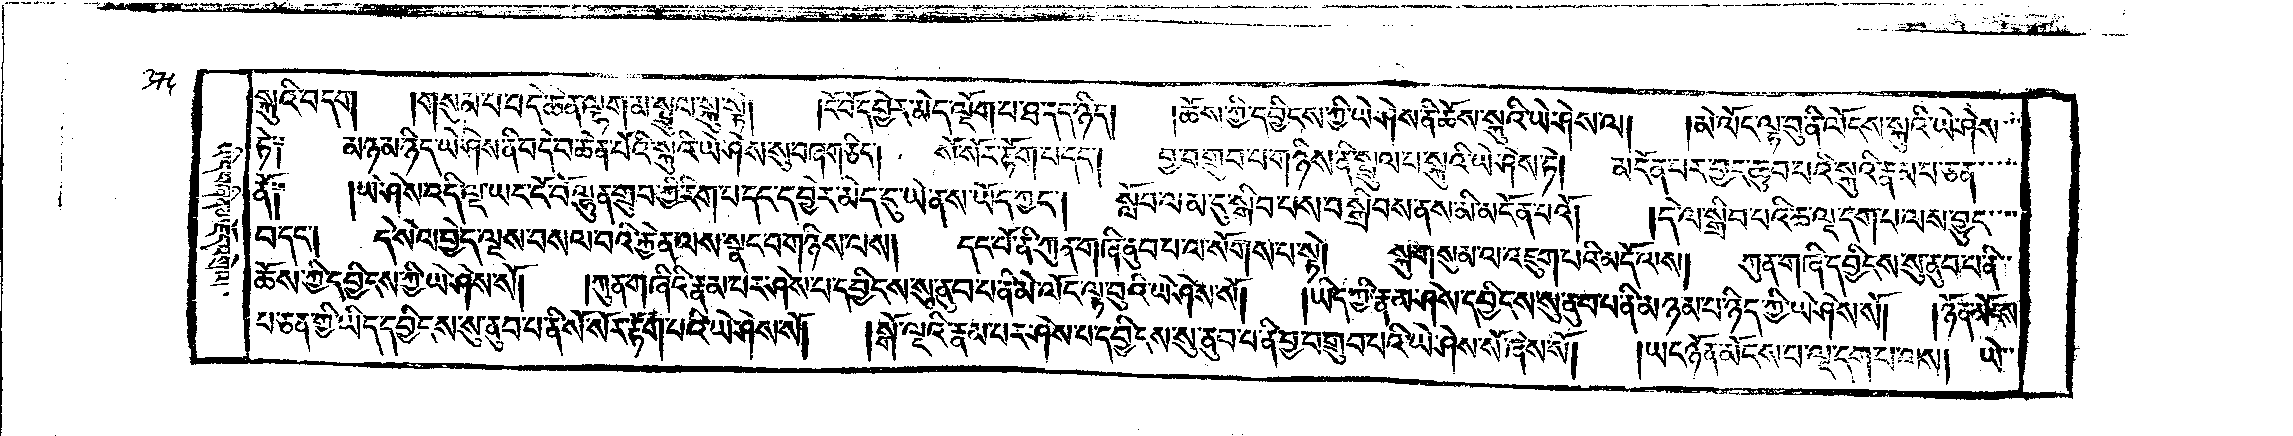 སྐུའི་བདག །གསུམ་པ་བདེ་ཆེན་ལྷག་མ་སྤྲུལ་སྐུ་སྟེ། །ངོ་བོ་དབྱེར་མེད་ལྡོག་པ་ཐ་དད་ཉིད། །ཆོས་ཀྱི་དབྱིངས་ཀྱི་ཡེ་ཤེས་ནི་ཆོས་སྐུའི་ཡེ་ཤེས་ལ། །མེ་ལོང་ལྟ་བུ་ནི་ལོངས་སྐུའི་ཡེ་ཤེས་
ཏེ། མཉམ་ཉིད་ཡེ་ཤེས་ནི་བདེ་བ་ཆེན་པོའི་སྐུའི་ཡེ་ཤེས་སུ་བཞག་ཅིད། སོ་སོར་རྟོག་པ་དད། བྱ་བ་གྲུབ་པ་གཉིས་ནི་སྤྲུལ་པ་སྐུའི་ཡེ་ཤེས་ཏེ། མངོན་པར་བྱང་ཆུབ་པའི་སྐུའི་རྣམ་པ་ཅན་
ནོ། །ཡེ་ཤེས་འདི་ལྔ་ཡང་ངོ་བོ་ལྷུན་གྲུབ་ཀྱི་རིག་པ་དང་དབྱེར་མེད་དུ་ཡེ་ནས་ཡོད་ཀྱང་། སློབ་ལ་མ་དུ་སྒྲིབ་པས་བསྒྲིབས་ནས་མི་མངོན་པའོ། །དེ་ལ་སྒྲིབ་པའི་ཆ་ལྔ་དག་པ་ལས་བྱུང་
བ་དང་། དེ་སེལ་བྱེད་ལྔས་བསལ་བའི་རྐྱེན་ལས་སྣང་བ་གཉིས་ལས། དང་པོ་ནི་ཀུན་གཞི་ནུབ་པ་ལ་སོགས་པ་སྟེ། སྐུ་གསུམ་ལ་འཇུག་པའི་མདོ་ལས། ཀུན་གཞི་དབྱིངས་སུ་ནུབ་པ་ནི་
ཆོས་ཀྱི་དབྱིངས་ཀྱི་ཡེ་ཤེས་སོ། །ཀུན་གཞིའི་རྣམ་པར་ཤེས་པ་དབྱིངས་སུ་ནུབ་པ་ནི་མེ་ལོང་ལྟ་བུའི་ཡེ་ཤེས་སོ། །ཡིད་ཀྱི་རྣམ་ཤེས་དབྱིངས་སུ་ནུབ་པ་ནི་མཉམ་པ་ཉིད་ཀྱི་ཡེ་ཤེས་སོ། །ཉོན་མོངས་
པ་ཅན་གྱི་ཡིད་དབྱིངས་སུ་ནུབ་པ་ནི་སོ་སོར་རྟོག་པའི་ཡེ་ཤེས་སོ། །སྒོ་ལྔའི་རྣམ་པར་ཤེས་པ་དབྱིངས་སུ་ནུབ་པ་ནི་བྱ་བ་གྲུབ་པའི་ཡེ་ཤེས་སོ་ཞེས་སོ། །ཡང་ཉོན་མོངས་པ་ལྔ་དག་པ་ལས། ཡེ་